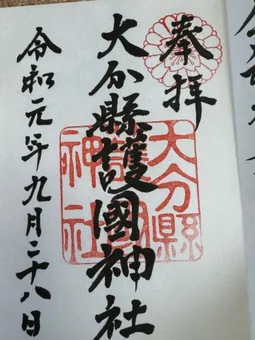 奉拝
大分縣護國神社
大分縣護國神社
令和元年九月二十八日